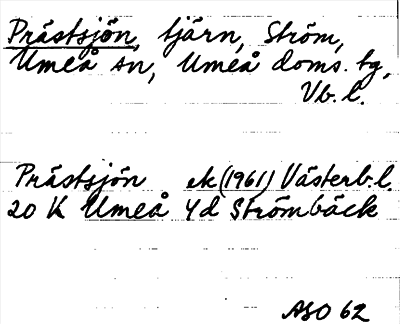 Prästsjön, tjärn, Ström,
Umeå sn, Umeå doms. tg,
Vb. l.
Prästsjön ek (1961) Västerb. l.
20 K Umeå 4d Strömbäck
ASO 62